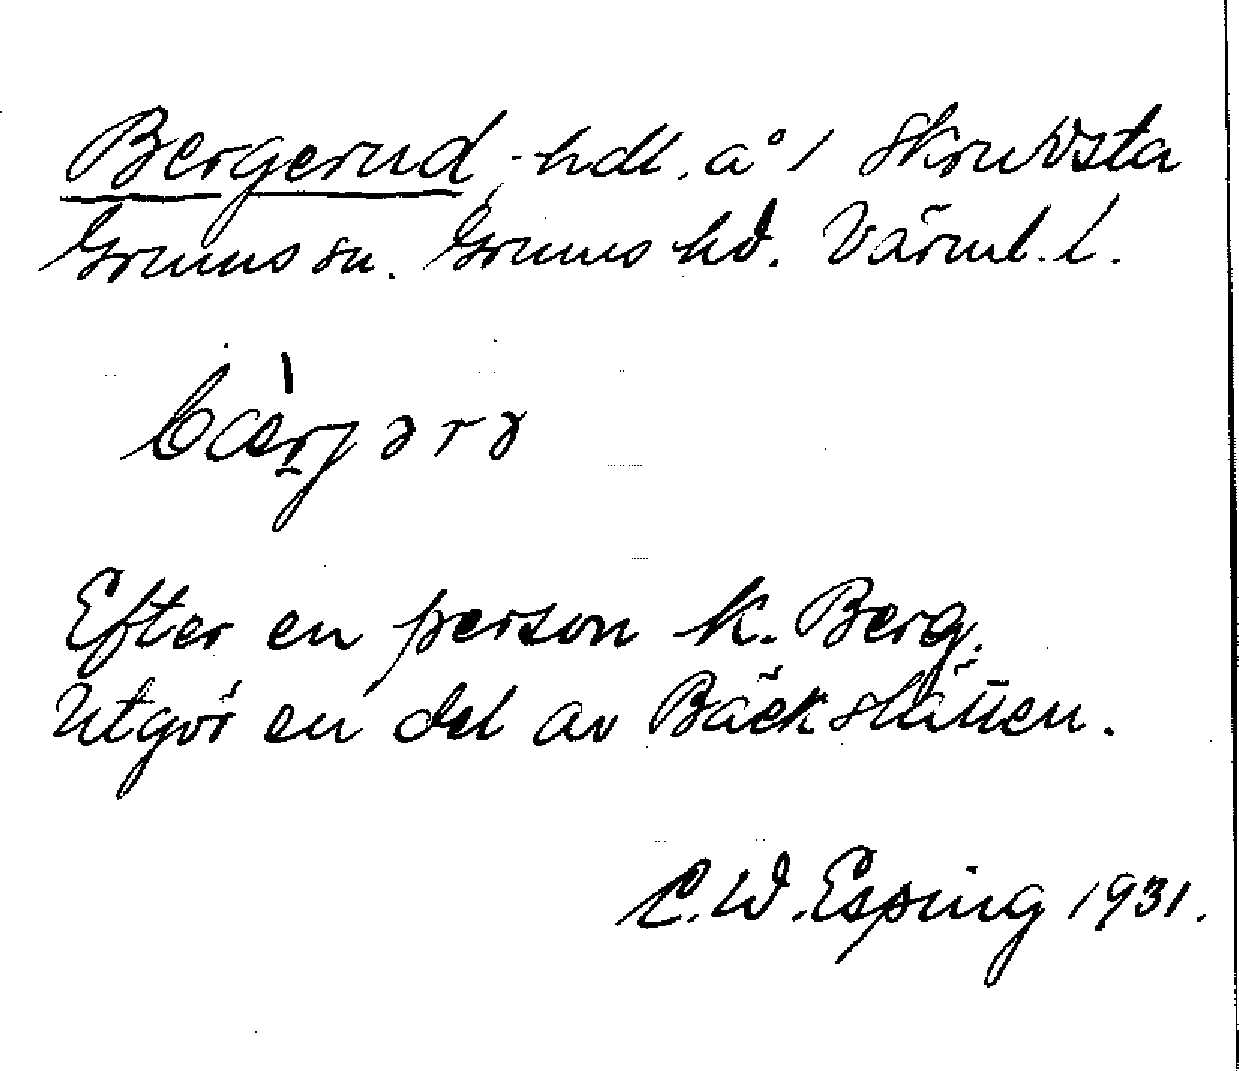 Bergerud, hdl. å 1 Skruvsta
Grums sn. Grums hd. Värml. l.
Efter en person k. Berg.
Utgör en del av Bäckslätten.
C. W. Esping 1931.